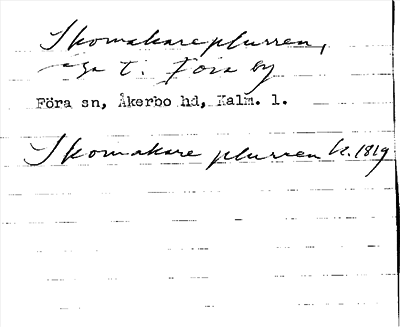 Skomakareplurren,
äga t. Föra by
Föra sn, Åkerbo hd, Kalm. l.
Skomakare plurren Lr. 1819